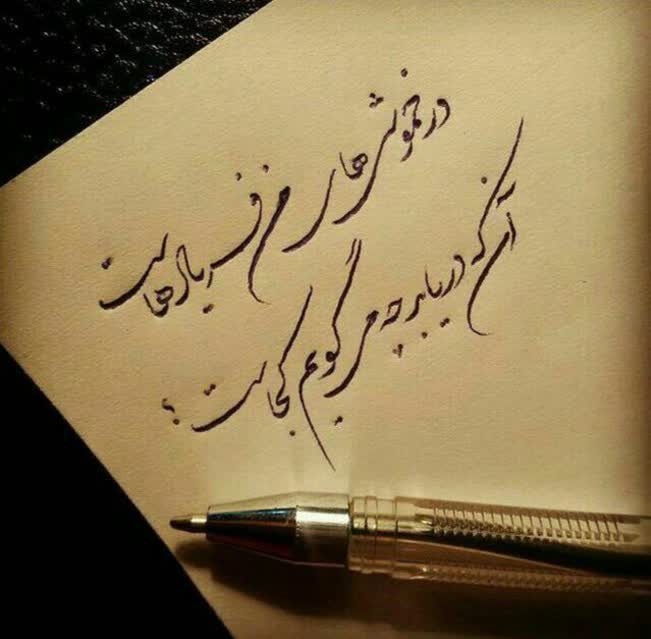 در خموشی های من فریادهاست
آن که دریابد چه می گویم کجاست؟